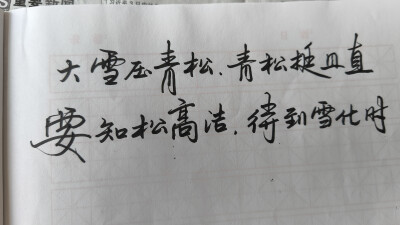 大雪压青松,青松挺且直
要知松高洁,待到雪化时